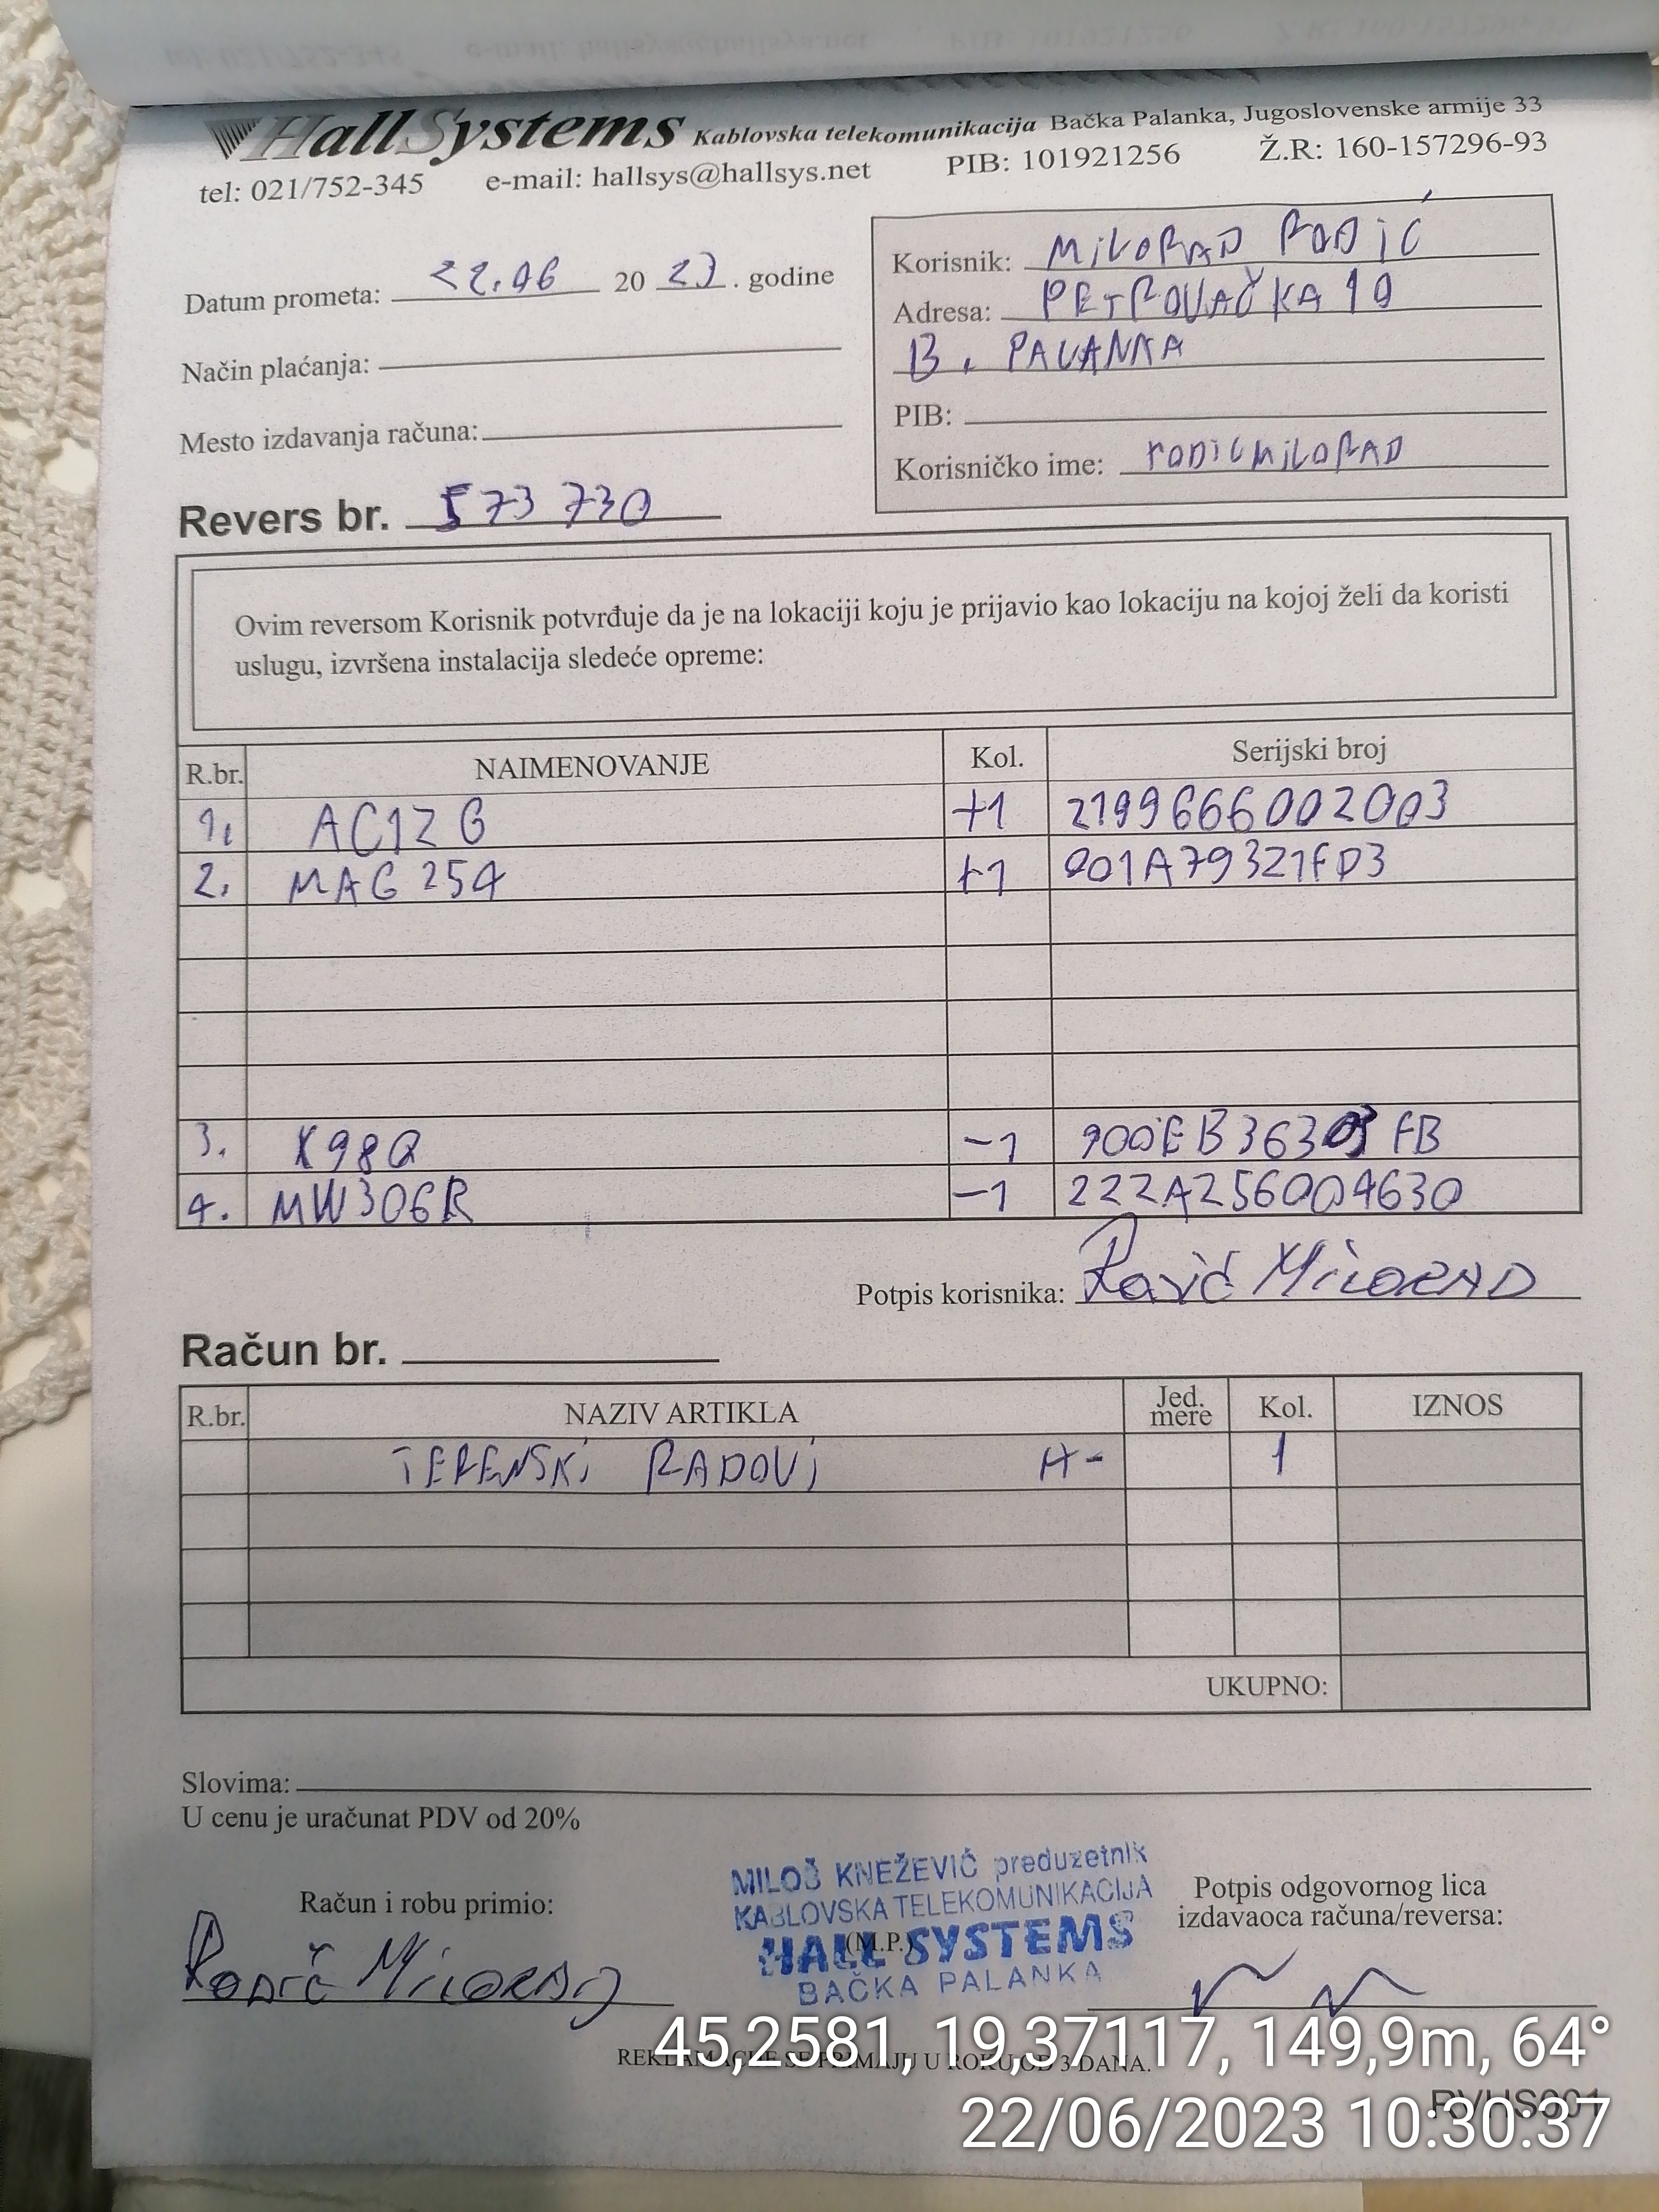 HallSystems Kablovska telekomunikacija Bačka Palanka, Jugoslovenske armije 33
tel: 021/752-345 e-mail: hallsys@hallsys.net PIB: 101921256 Ž.R: 160-157296-93
Datum prometa: 22.06 20 23. godine
Način plaćanja:
Mesto izdavanja računa:
Revers br. 573 730
Korisnik: MILORAD RODIĆ
Adresa: PETROVAČKA 10
B. PALANKA
PIB:
Korisničko ime: rODICMILORAD
Ovim reversom Korisnik potvrđuje da je na lokaciji koju je prijavio kao lokaciju na kojoj želi da koristi
uslugu, izvršena instalacija sledeće opreme:
R.br. NAIMENOVANJE Kol. Serijski broj
1. AC12 G +1 2199666002003
2. MAG 254 +1 001A79321FD3
3. X98Q -1
4. MW306R -1 222A256004630
Potpis korisnika: RODIĆ MILORAD
Račun br.
R.br. NAZIV ARTIKLA Jed. mere Kol. IZNOS
TERENSKI RADOVI 1
UKUPNO:
Slovima:
U cenu je uračunat PDV od 20%
Račun i robu primio:
RODIĆ MILORAD
MILOŠ KNEŽEVIĆ preduzetnik
KABLOVSKA TELEKOMUNIKACIJA
(M.P.)
HALL SYSTEMS
BAČKA PALANKA
Potpis odgovornog lica
izdavaoca računa/reversa:
REKLAMACIJE SE PRIMAJU U ROKU OD 3 DANA.
RVHS001
45,2581, 19,37117, 149,9m, 64°
22/06/2023 10:30:37